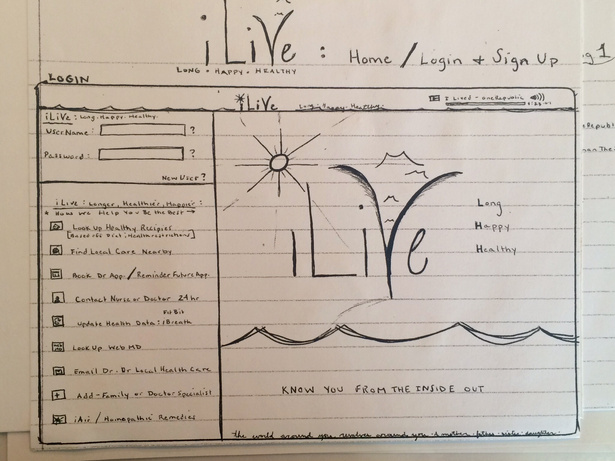 iLiVe : Home / Login & Sign Up
LONG • HAPPY • HEALTHY
LOGIN
iLiVe Long. Happy. Healthy.
I Lived - OneRepublic
iLiVe : Long. Happy. Healthy.
UserName : ?
Password : ?
New User ?
iLive : Longer, Healthier, Happier :
* How We Help You Be the Best →
Look Up Healthy Recipies
Find Local Care Nearby
Book Dr App. / Reminder Future App.
Contact Nurse or Doctor 24hr
FitBit
Update Health Data : iBreath
Look Up Web MD
Email Dr - Dr Local Health Care
Add - Family or Doctor Specialist
iAii / Homopathic Remedies
iLiVe
Long
Happy
Healthy
KNOW YOU FROM THE INSIDE OUT
the world around you revolves around you